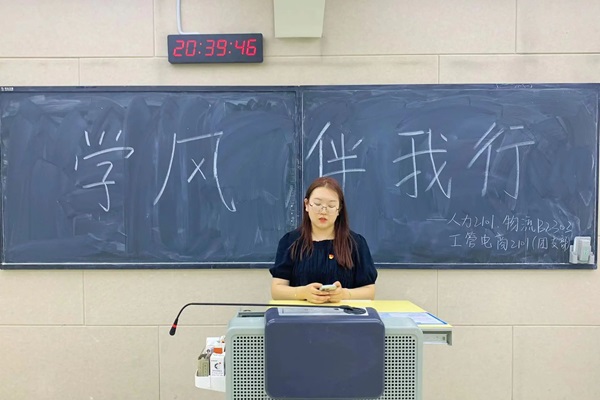 20:39:46
学风伴我行
一人力2101 物流
工管电商2101(团支部